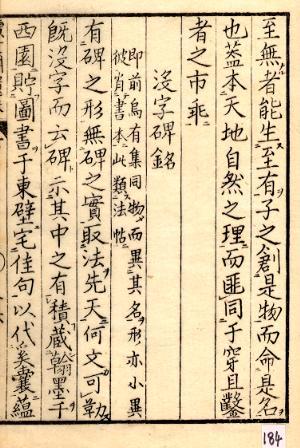 至無者能生至有子之創是物而命是名
也蓋本天地自然之理而匪同于穿且鑿
者之市乖
沒字碑銘
即前烏有集同物而異其名形亦小異
彼肖書本此類法帖
有碑之形無碑之實取法先天何文可勒
既沒字而云碑示其中之有積蔵翰墨于
西園貯圖書于東壁宅佳句以代奚囊蘊
184